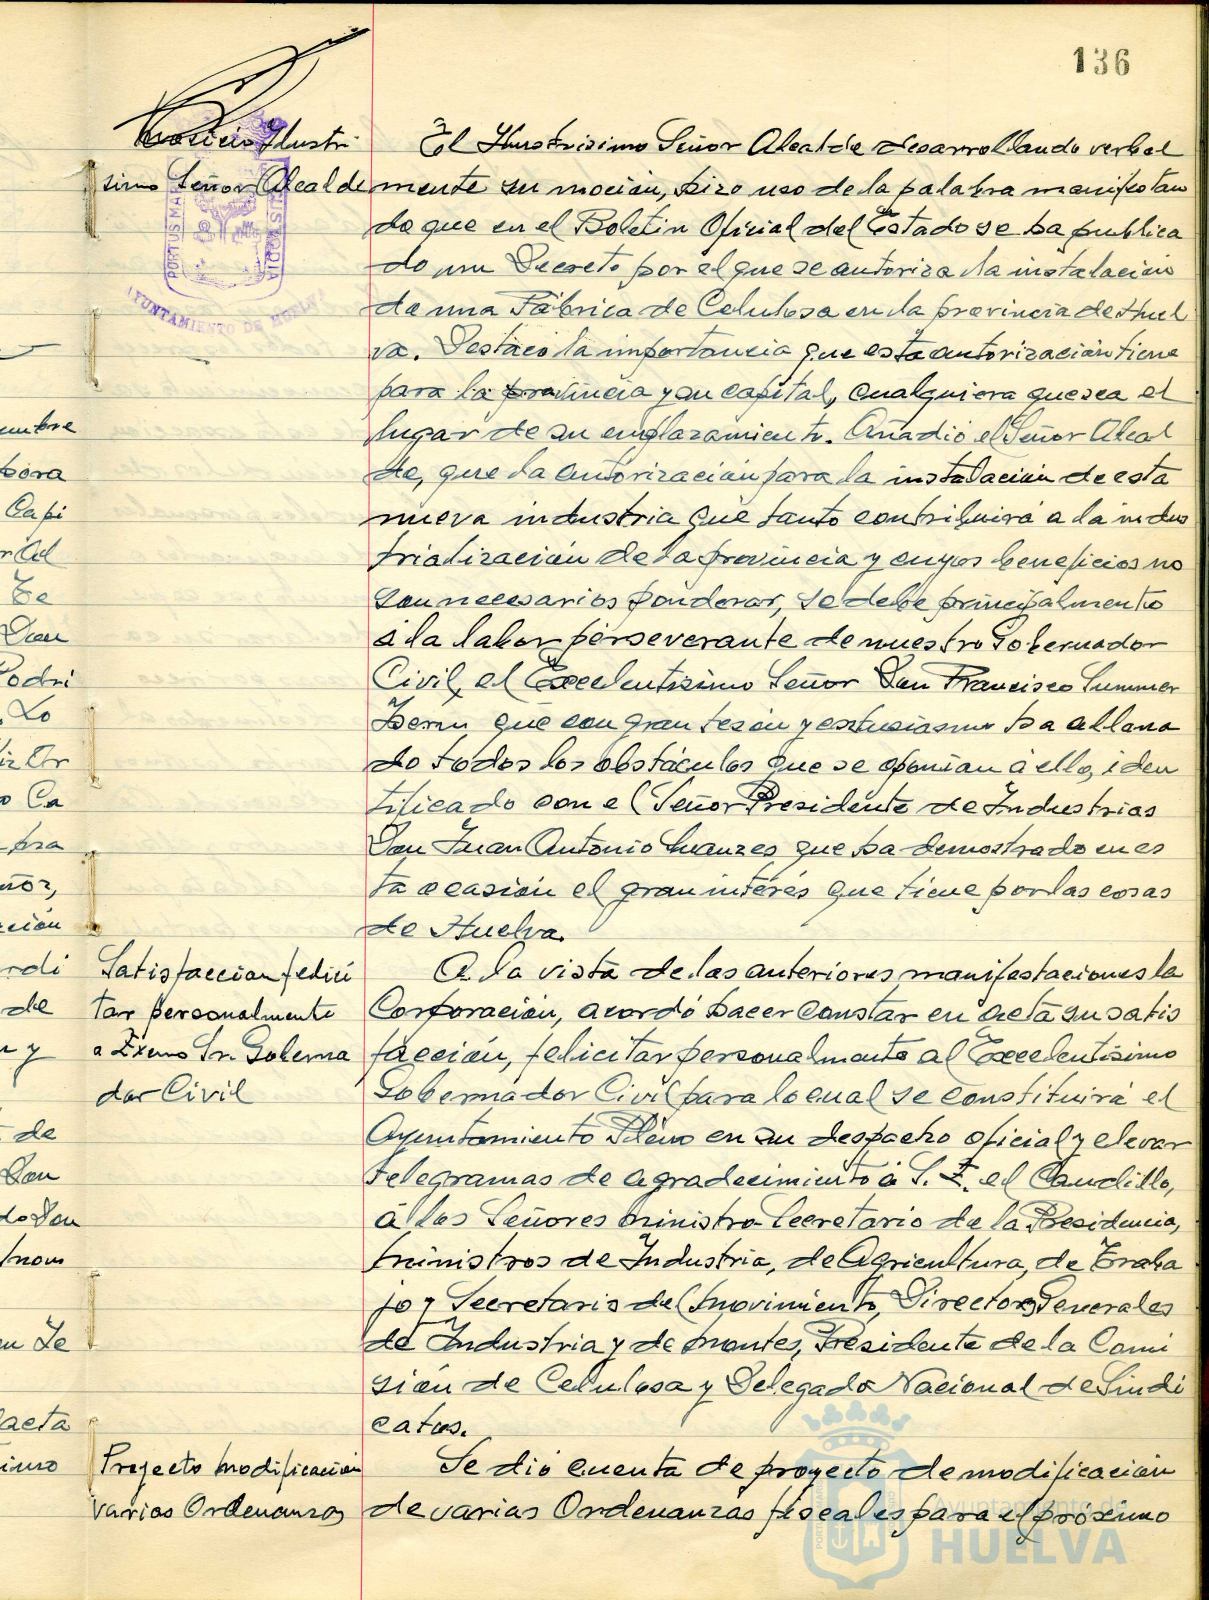 136
Moción Ilustrí
simo Señor Alcalde
El Ilustrisimo Señor Alcalde desarrollando verbal
mente su moción, hizo uso de la palabra manifestan
do que en el Boletin Oficial del Estado se ha publica
do un Decreto por el que se autoriza la instalación
de una Fábrica de Celulosa en la provincia de Huel
va. Destacó la importancia que esta autorización tiene
para la provincia y su capital, cualquiera que sea el
lugar de su emplazamiento. Añadió el Señor Alcal
de, que la autorización para la instalación de esta
nueva industria que tanto contribuirá a la indus
trialización de la provincia y cuyos beneficios no
son necesarios ponderar, se debe principalmente
á la labor perseverante de nuestro Gobernador
Civil, el Excelentisimo Señor Don Francisco Summer
Isern que con gran tesón y entusiasmo ha allana
do todos los obstáculos que se oponian á ello, iden
tificado con el Señor Presidente de Industrias
Don Juan Antonio Suanzes que ha demostrado en es
ta ocasión el gran interés que tiene por las cosas
de Huelva.
Satisfaccion felici
tar personalmente
a Excmo Sr. Goberna
dor Civil
A la vista de las anteriores manifestaciones la
Corporación, acordó hacer constar en acta su satis
facción, felicitar personalmente al Excelentisimo
Gobernador Civil para lo cual se constituirá el
Ayuntamiento Pleno en su despacho oficial y elevar
telegramas de agradecimiento á S. E. el Caudillo,
á los Señores Ministro Secretario de la Presidencia,
Ministros de Industria, de Agricultura, de Traba
jo y Secretario del Movimiento, Directores Generales
de Industria y de Montes, Presidente de la Comi
sión de Celulosa y Delegado Nacional de Sindi
catos.
Proyecto modificación
varias Ordenanzas
Se dió cuenta de proyecto de modificación
de varias Ordenanzas fiscales para el próximo
umbre
hora
Capi
r Ad
Te
Don
Rodri
Lo
iz Or
o Ca
bra
ñoz,
ción
rdi
de
n y
de
Don
do Don
nom
en Te
acta
simo
PORTUS MARIS
AYUNTAMIENTO DE HUELVA
Ayuntamiento de
HUELVA